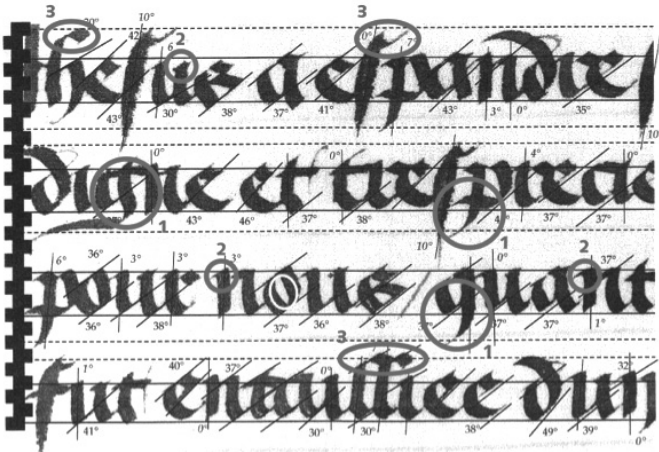 3 20° 10° 42° 6 2 3 0° 7°
ihesus a espandre
43° 30° 38° 37° 41° 43° 3° 0° 35° 10
0° 0° 4° 0°
digne et tresprecie
43° 46° 37° 38° 37° 37°
1 10° 1
6° 36° 3° 3° 2 3° 0° 2 37°
pour nous quant
36° 38° 37° 36° 38° 37° 37° 1°
3 1
1° 40° 37° 0° 32°
fut entailliee dun
41° 0° 30° 30° 38° 49° 39° 0°